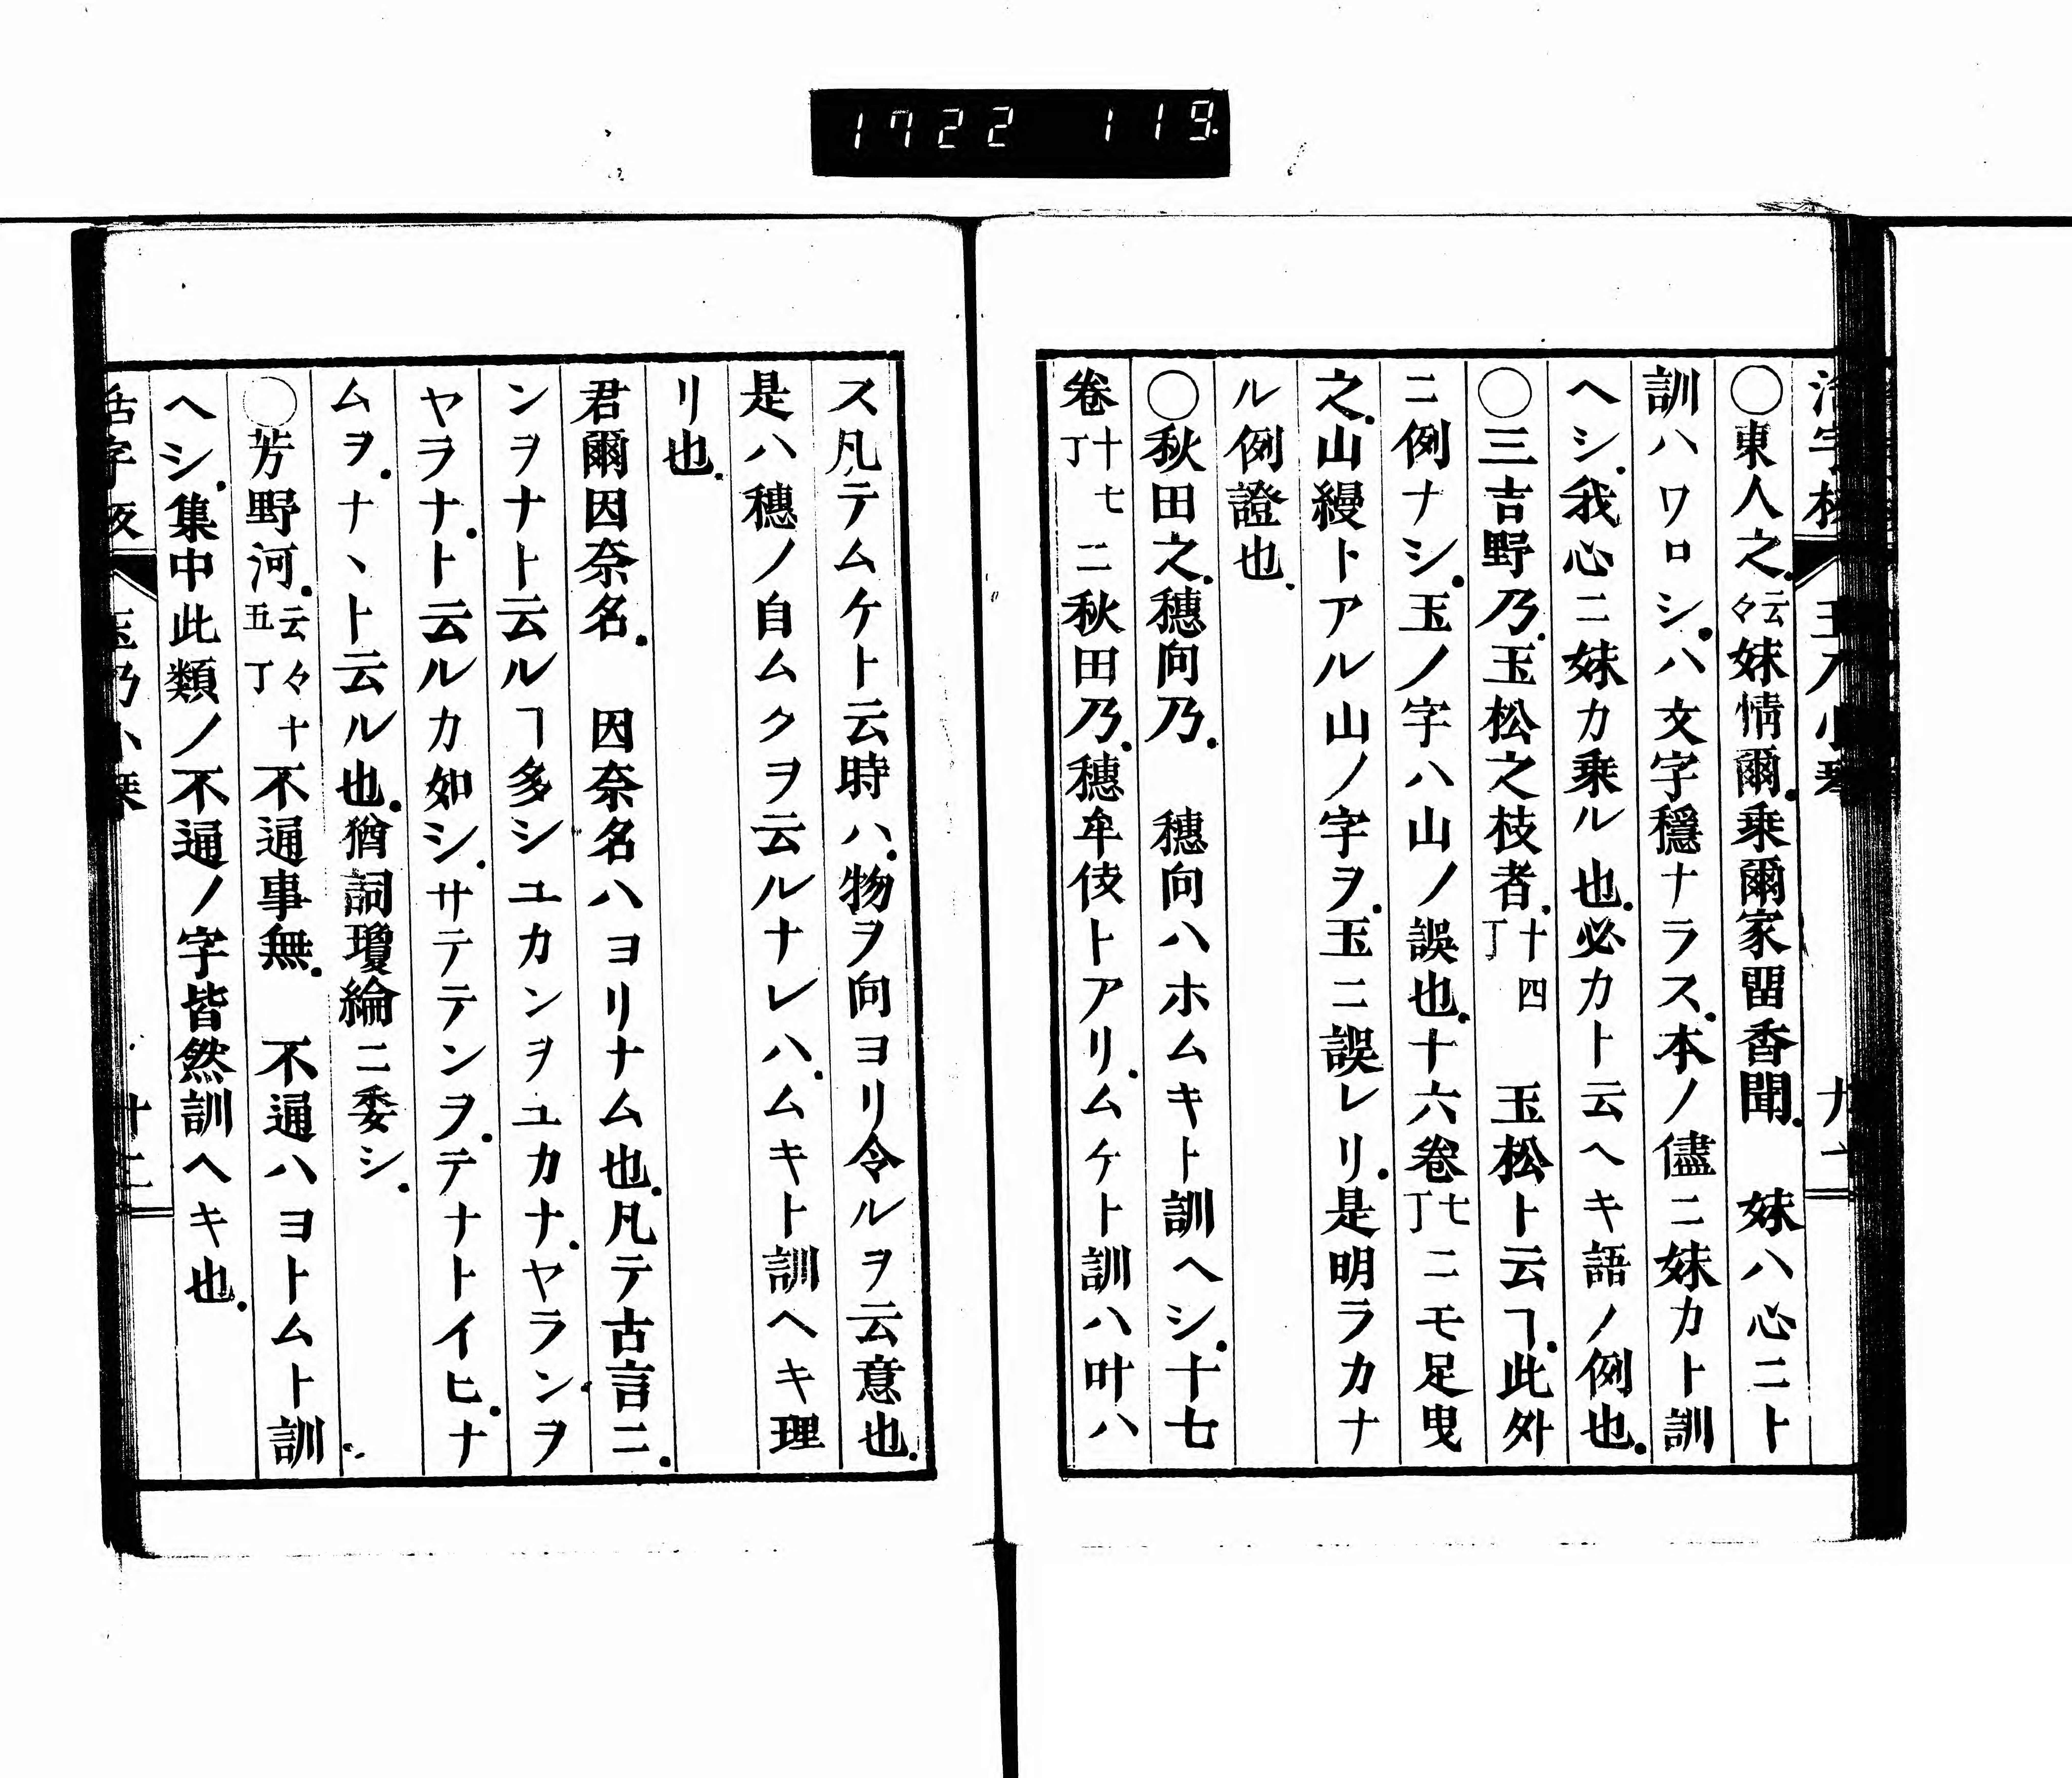 1722 119
○東人之.云々妹情爾.乗爾家畱香聞.　妹ハ心ニト
訓ハワロシ.ハ文字穩ナラス.本ノ儘ニ妹カト訓
ヘシ.我心ニ妹カ乗ル也.必カト云ヘキ語ノ例也.
○三吉野乃.玉松之枝者.十四丁　玉松ト云ヿ.此外
ニ例ナシ.玉ノ字ハ山ノ誤也.十六卷七丁ニモ足曳
之.山縵トアル山ノ字ヲ.玉ニ誤レリ.是明ラカナ
ル例證也.
○秋田之.穗向乃.　穗向ハホムキト訓ヘシ.十七
卷十七丁ニ秋田乃.穗牟伎トアリ.ムケト訓ハ叶ハ
ス凡テムケト云時ハ.物ヲ向ヨリ令ルヲ云意也.
是ハ穗ノ自ムクヲ云ルナレハ.ムキト訓ヘキ理
リ也.
君爾因奈名.　因奈名ハヨリナム也.凡テ古言ニ.
ンヲナト云ルヿ多シユカンヲユカナ.ヤランヲ
ヤヲナ.ト云ルカ如シ.サテテンヲ.テナトイヒ.ナ
ムヲ.ナヽト云ル也.猶詞瓊綸ニ委シ.
○芳野河.云々十五丁不通事無.　不通ハヨトムト訓
ヘシ.集中此類ノ不通ノ字皆然訓ヘキ也.